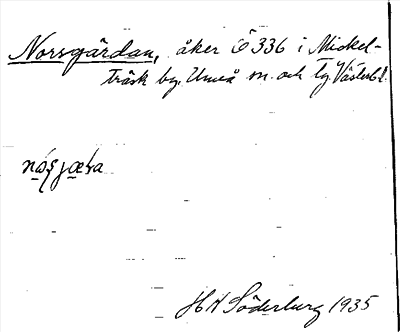 Norsgärdan, åker Ö 336 i Mickel-
träsk by, Umeå sn. och tg. Västerb. l.
HN Söderberg 1935